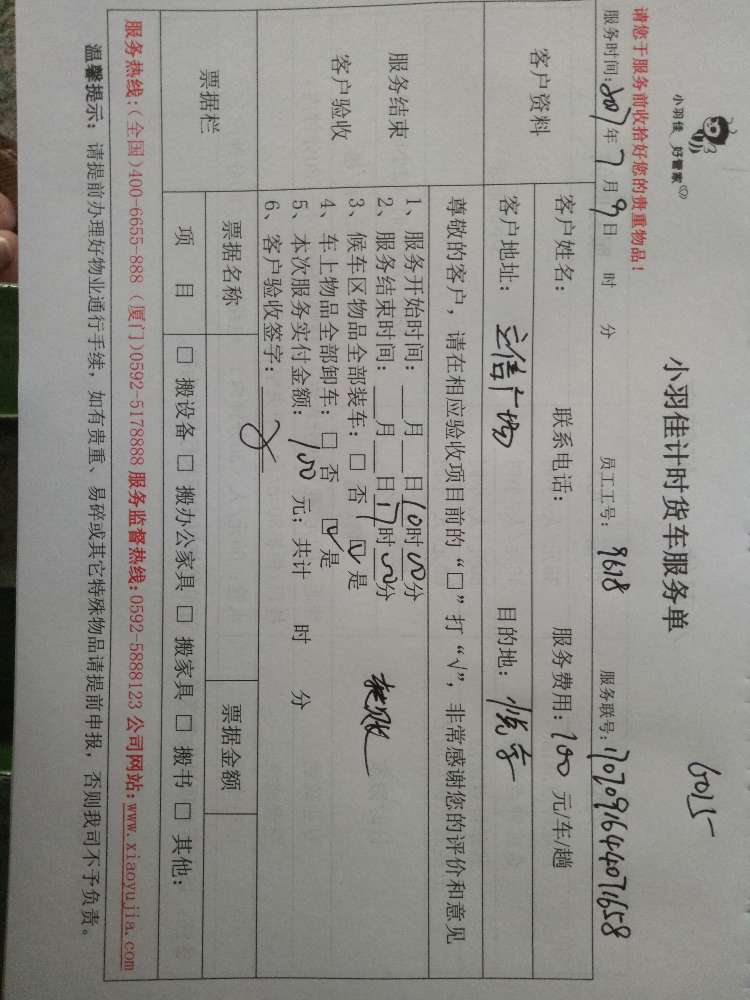 6015
小羽佳 好管家
小羽佳计时货车服务单
请您于服务前收拾好您的贵重物品！
服务时间：2017年7月9日 时 分 员工工号：9618 服务联号：1707091644071658
客户资料
客户姓名： 联系电话： 服务费用：100元/车/趟
客户地址：立信广场 目的地：悦享
尊敬的客户，请在相应验收项目前的“□”打“√”，非常感谢您的评价和意见
服务结束
客户验收
1、服务开始时间：__月__日10时00分
2、服务结束时间：__月__日17时00分
3、候车区物品全部装车：□ 否 ☑ 是
4、车上物品全部卸车：□ 否 ☑ 是
5、本次服务实付金额：100元；共计 时 分
6、客户验收签字：
票据栏
票据名称 票据金额
项 目 □ 搬设备 □ 搬办公家具 □ 搬家具 □ 搬书 □ 其他：
服务热线：(全国)400-6655-888 (厦门)0592-5178888 服务监督热线：0592-5888123 公司网站：www.xiaoyujia.com
温馨提示：请提前办理好物业通行手续，如有贵重、易碎或其它特殊物品请提前申报，否则我司不予负责。